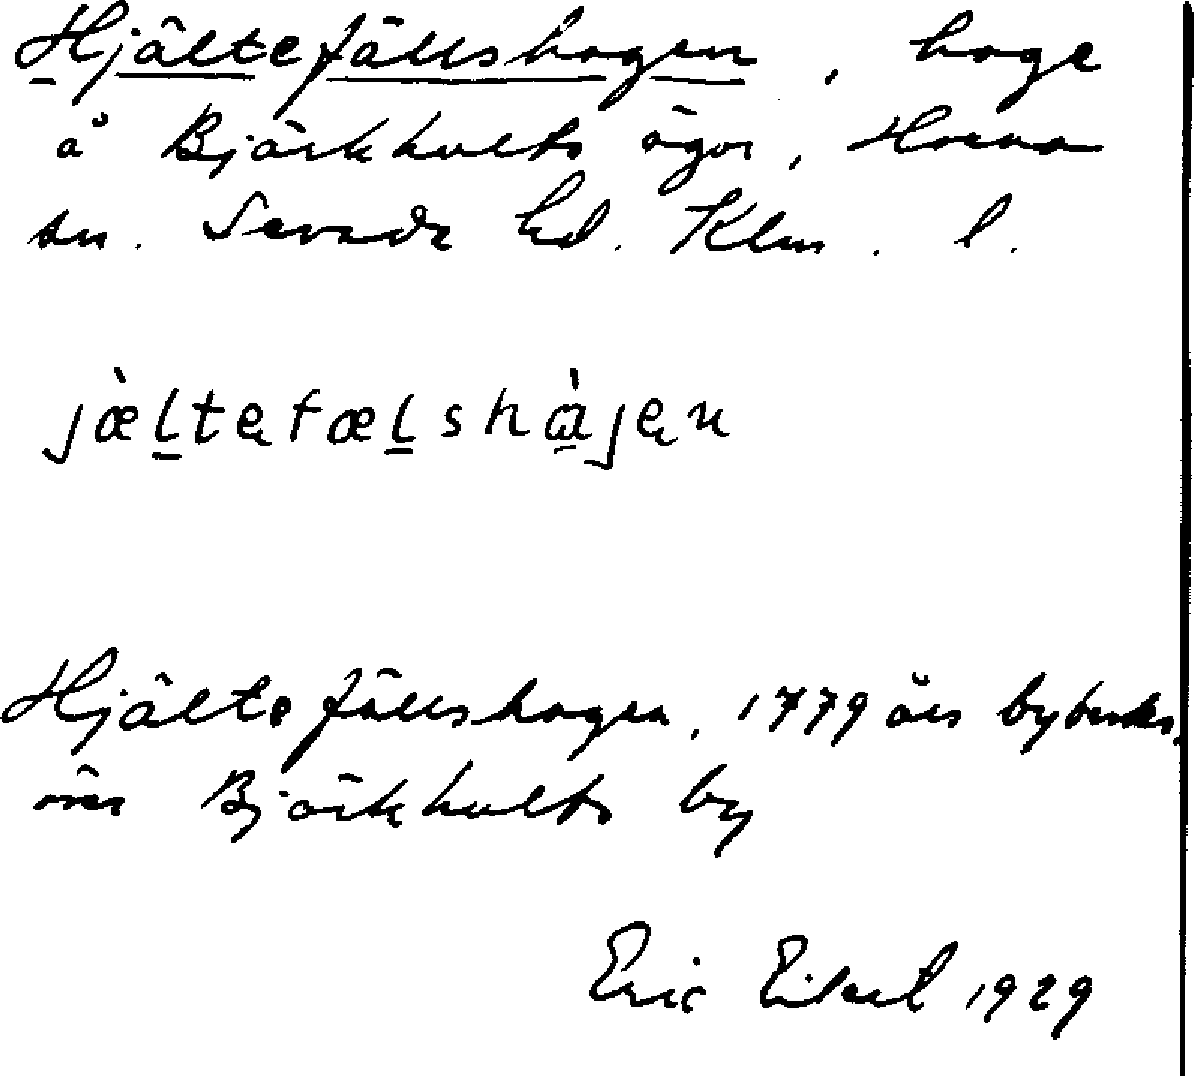 Hjältefällshagen, hage
å Björkhults ägor, Horna
sn. Sevede hd. Klm. l.
jæ̀ḻtęfæḻshàjęn
Hjältefällshagen, 1779 års
över Björkhults by
Eric 1929